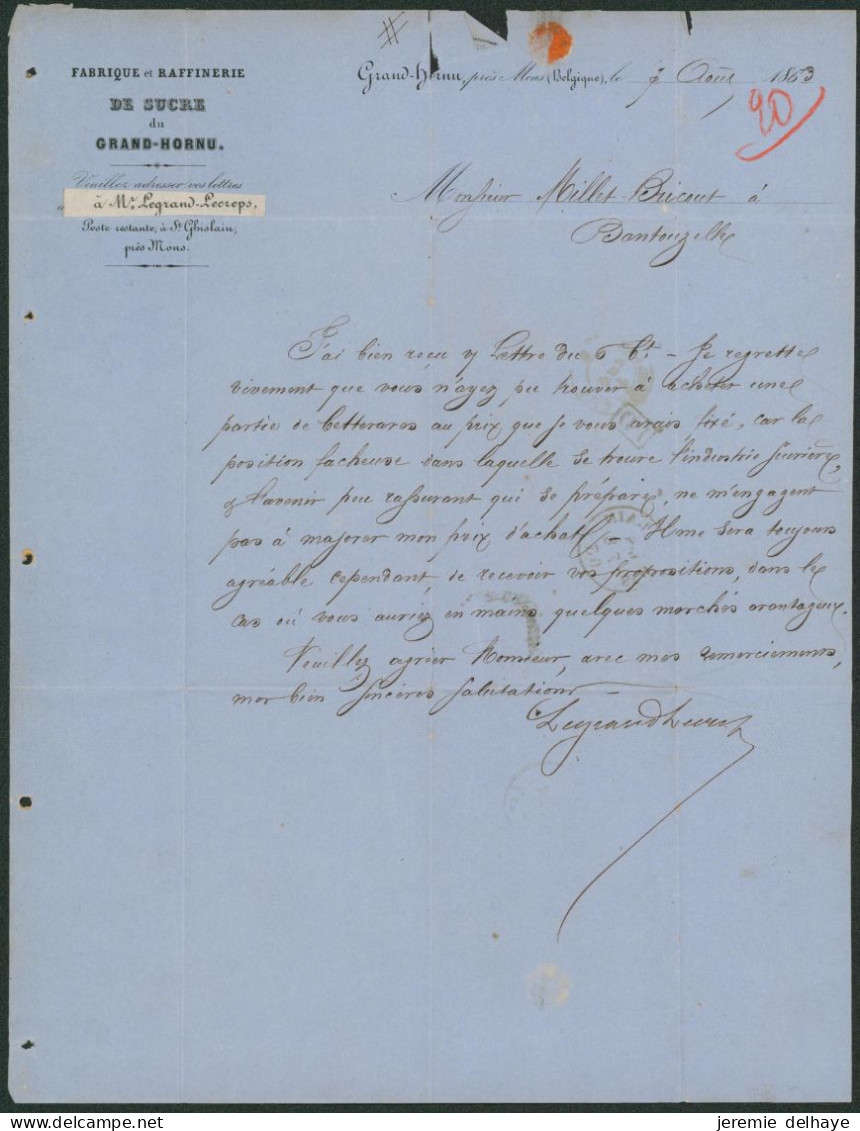 FABRIQUE et RAFFINERIE
DE SUCRE
du
GRAND-HORNU.
Veuillez adresser vos lettres
à Mr Legrand-Lecreps,
Poste restante, à St Ghislain,
près Mons.
Grand-Hornu, près Mons (Belgique), le 7 Août 1863
20
Monsieur Millet-Bricout à
Bantouzelle
J'ai bien reçu v/ Lettre du 6 Ct – Je regrette
vivement que vous n'ayez pu trouver à acheter une
partie de betteraves au prix que je vous avais fixé, car la
position facheuse dans laquelle se trouve l'industrie sucrière,
& l'avenir peu rassurant qui se prépare, ne m'engagent
pas à majorer mon prix d'achat – Il me sera toujours
agréable cependant, de recevoir vos propositions, dans le
cas où vous auriez en mains quelques marchés avantageux.
Veuillez agréer Monsieur, avec mes remerciements,
mes bien sincères salutations –
Legrand Lecreps
jeremie delhaye